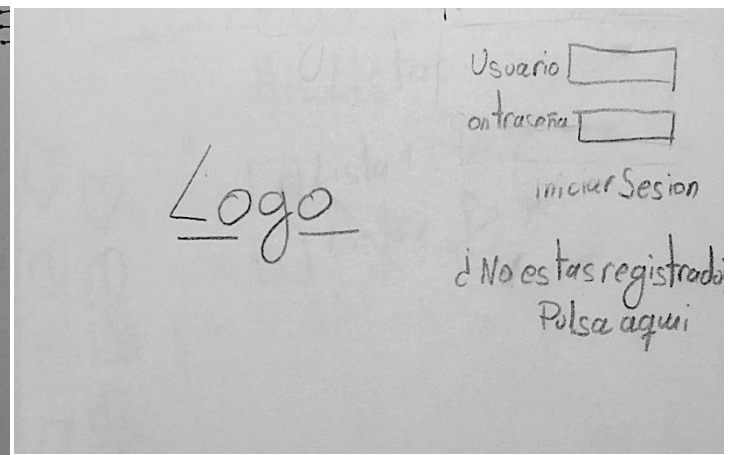 Logo
Usuario
ontraseña
iniciar Sesion
¿No estas registrado
Pulsa aqui